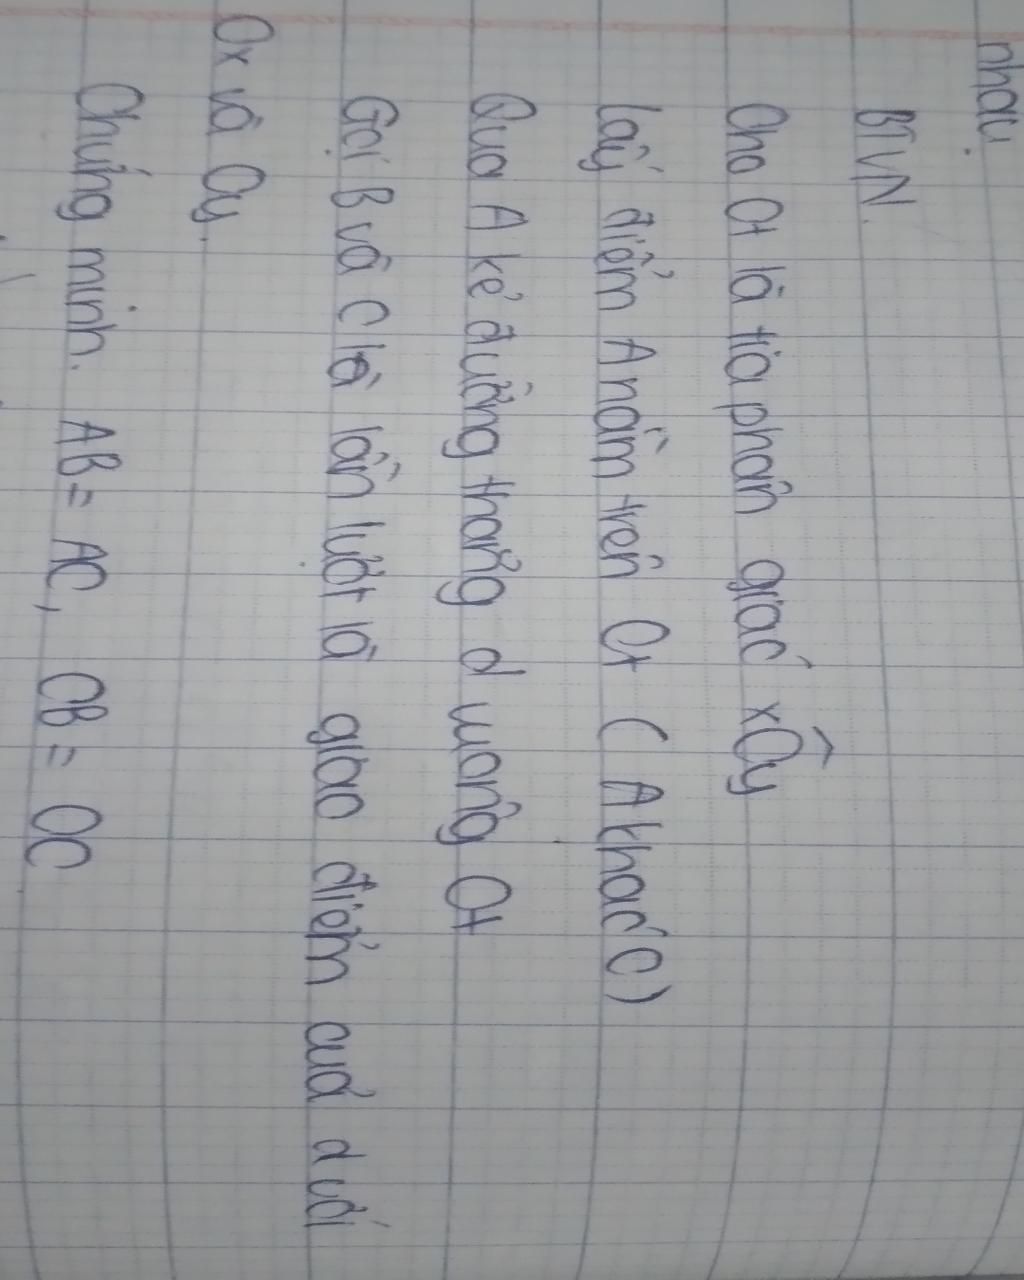 nhau.
BTVN.
Cho Ot là tia phân giác xÔy
Lấy điểm A nằm trên Ot ( A khác O)
Qua A kẻ đường thẳng d vuông Ot
Gọi B và C là lần lượt là giao điểm của d với
Ox và Oy.
Chứng minh. AB = AC, OB = OC